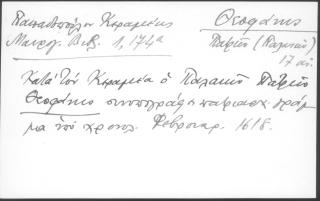 Παπαδόπουλου Κεραμέως
Μαυρογ. Βιβ. 1, 174α
Θεοφάνης
Πατμ (Παλαιὸς)
17 αι.
Κατὰ τὸν Κεραμέα ὁ Παλαιὸς
Θεοφάνης συνυπογράφει πατριαρχ. γράμ
μα ὑπὸ χρονολ. Φεβρουαρ. 1618.